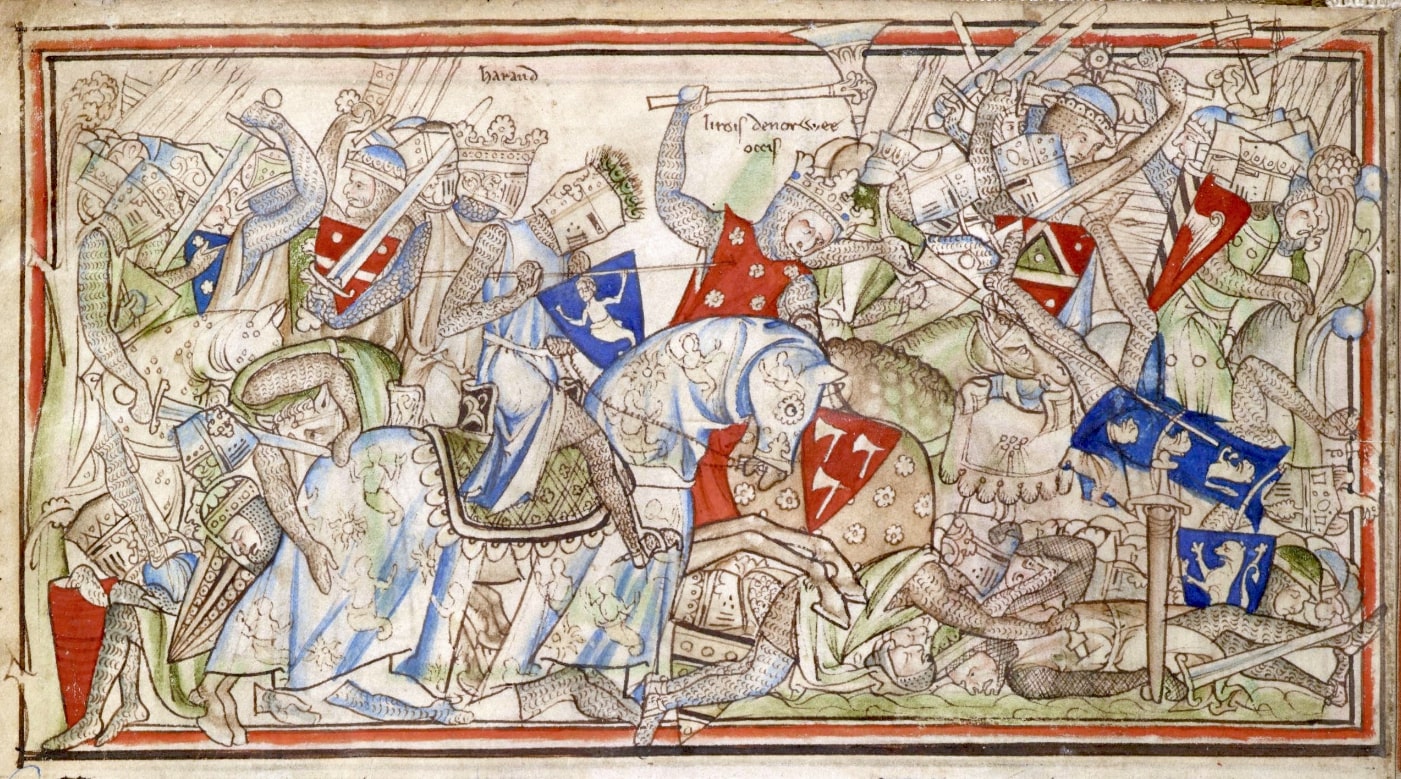 haraud
li rois de norwee
occis